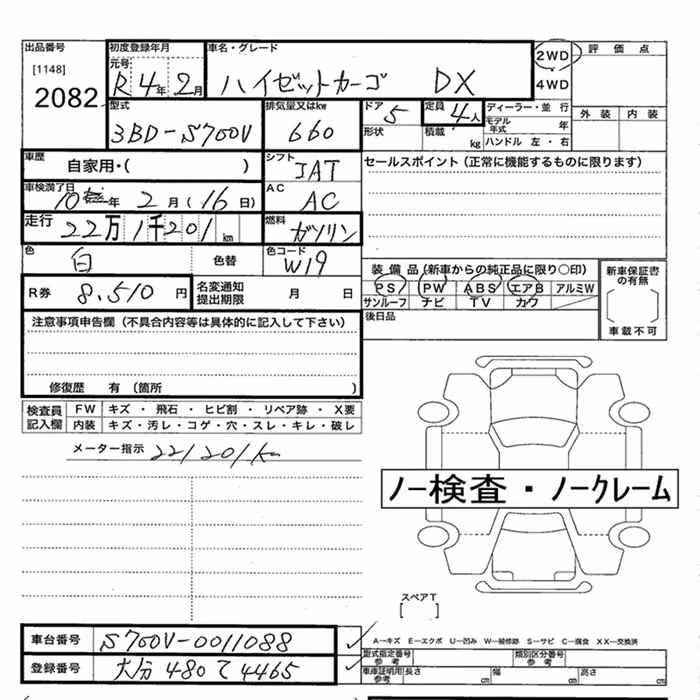 出品番号 初度登録年月 車名・グレード 2WD 評価点
[1148] 元号 4WD
2082 R 4年 2月 ハイゼットカーゴ DX
型式 排気量又はkw ドア 定員 ディーラー・並 行 外装 内装
3BD-S700V 660 5 4人 モデル年式 年
形状 積載 kg ハンドル 左・右
車歴 自家用・( ) シフト IAT セールスポイント(正常に機能するものに限ります)
車検満了日 10年 2月(16日) AC AC
走行 22万1千201km 燃料 ガソリン
色 白 色替 色コード W19 装備品(新車からの純正品に限り○印) 新車保証書の有無
R券 8,510円 名変通知提出期限 月 日 PS PW ABS エアB アルミW
サンルーフ ナビ TV カワ
注意事項申告欄(不具合内容等は具体的に記入して下さい) 後日品 車載不可
修復歴 有(箇所 )
検査員記入欄 FW キズ・飛石・ヒビ割・リペア跡・X要
内装 キズ・汚レ・コゲ・穴・スレ・キレ・破レ
メーター指示 221201km
ノー検査・ノークレーム
スペアT
[ ]
車台番号 S700V-0011088 A-キズ E-エクボ U-凹み W-補修跡 S-サビ C-腐食 XX-交換済
型式指定番号 参考 類別区分番号 参考
登録番号 大分480て4465 車庫証明用 参考 長さ cm 幅 cm 高さ cm